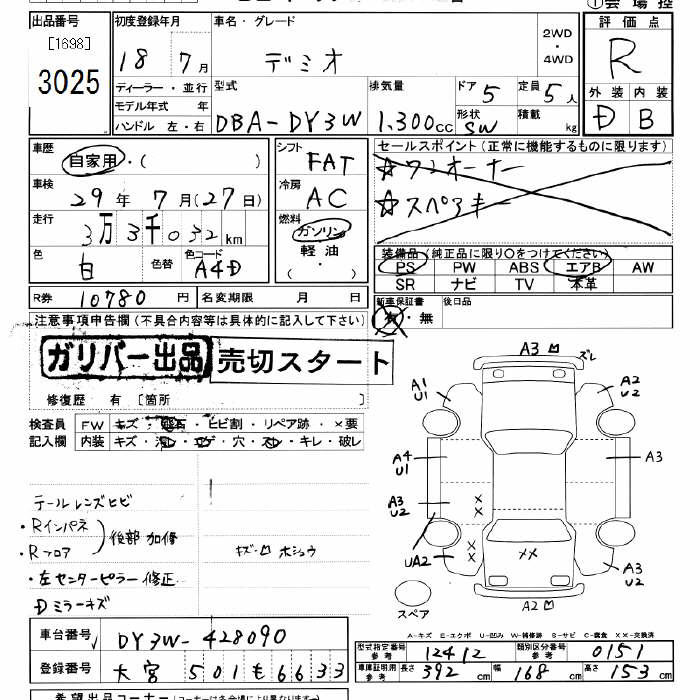 ①会場控
出品番号 初度登録年月 車名・グレード 評価点
[1698]
3025
18 7月 デミオ 2WD・4WD R
ディーラー・並行 型式 排気量 ドア 5 定員 5人 外装 内装
モデル年式 年 形状 積載 D B
ハンドル 左・右 DBA-DY3W 1,300cc SW kg
車歴 自家用・( ) シフト FAT セールスポイント(正常に機能するものに限ります)
☆ワンオーナー
車検 29年 7月(27日) 冷房 AC
☆スペアキー
走行 3万3千032km 燃料 ガソリン
軽油
・( )
色 白 色替 色コード A4D
装備品(純正品に限り○をつけてください)
PS PW ABS エアB AW
SR ナビ TV 本革
R券 10780円 名変期限 月 日
新車保証書 後日品
有・無
注意事項申告欄(不具合内容等は具体的に記入して下さい)
ガリバー出品 売切スタート
修復歴 有 [箇所 ]
検査員 FW キズ・飛石・ヒビ割・リペア跡・×要
記入欄 内装 キズ・汚レ・コゲ・穴・スレ・キレ・破レ
テールレンズヒビ
・Rインパネ
・Rフロア
後部 加修
キズ・凹 ホシュウ
・左センターピラー修正
Dミラーキズ
A3 凹 ズレ
A1
U1
A2
U2
A4
U1
A3
A3
U2
××
UA2
××
××
A3
U2
スペア
A2 凹
A-キズ E-エクボ U-凹み W-補修跡 S-サビ C-腐食 ××-交換済
車台番号 DY3W-428090
型式指定番号 参考 12412 類別区分番号 参考 0151
登録番号 大宮 501 も 6633
車庫証明用 参考 長さ 392cm 幅 168cm 高さ 153cm
希望出品コーナー